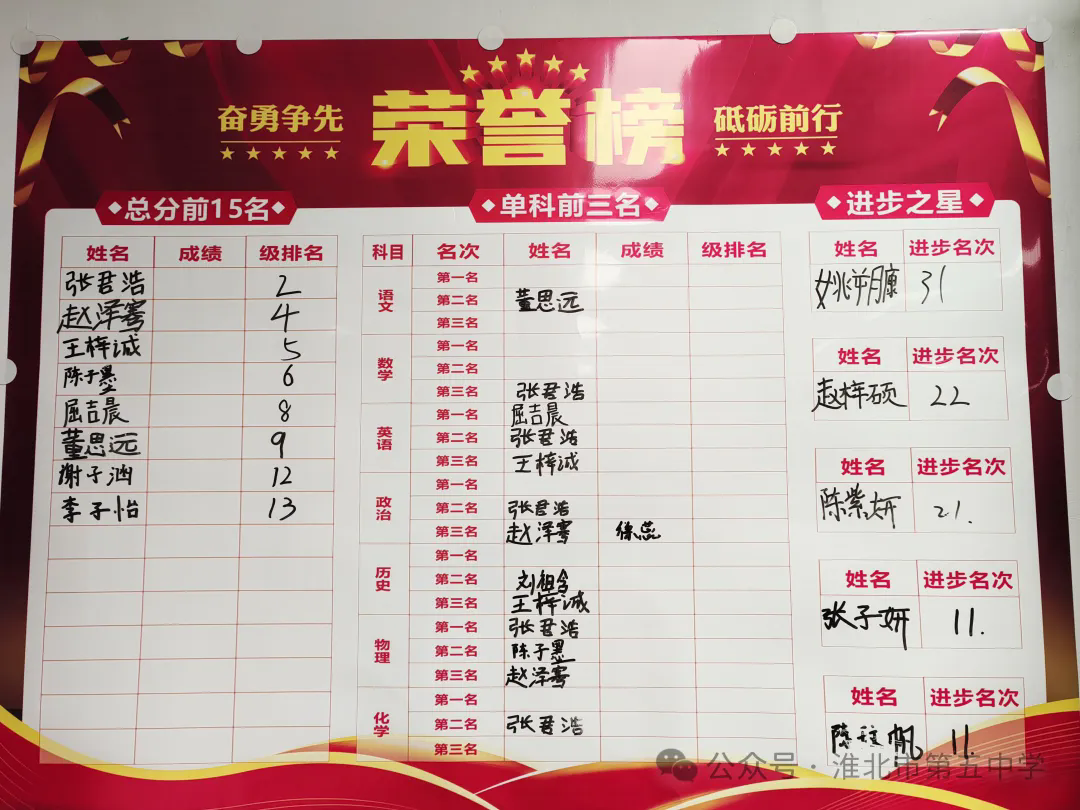 奋勇争先 荣誉榜 砥砺前行
总分前15名
姓名 成绩 级排名
张君浩 2
赵泽骞 4
王梓诚 5
陈子墨 6
屈吉晨 8
董思远 9
谢子涵 12
李子怡 13
单科前三名
科目 名次 姓名 成绩 级排名
语文
第一名
第二名 董思远
第三名
数学
第一名
第二名
第三名 张君浩
英语
第一名 屈吉晨
第二名 张君浩
第三名 王梓诚
政治
第一名
第二名 张君浩
第三名 赵泽骞 徐蕊
历史
第一名
第二名 刘祖含
第三名 王梓诚
物理
第一名 张君浩
第二名 陈子墨
第三名 赵泽骞
化学
第一名
第二名 张君浩
第三名
进步之星
姓名 进步名次
31
姓名 进步名次
赵梓硕 22
姓名 进步名次
陈紫妍 21.
姓名 进步名次
张子妍 11.
姓名 进步名次
11.
公众号·淮北市第五中学